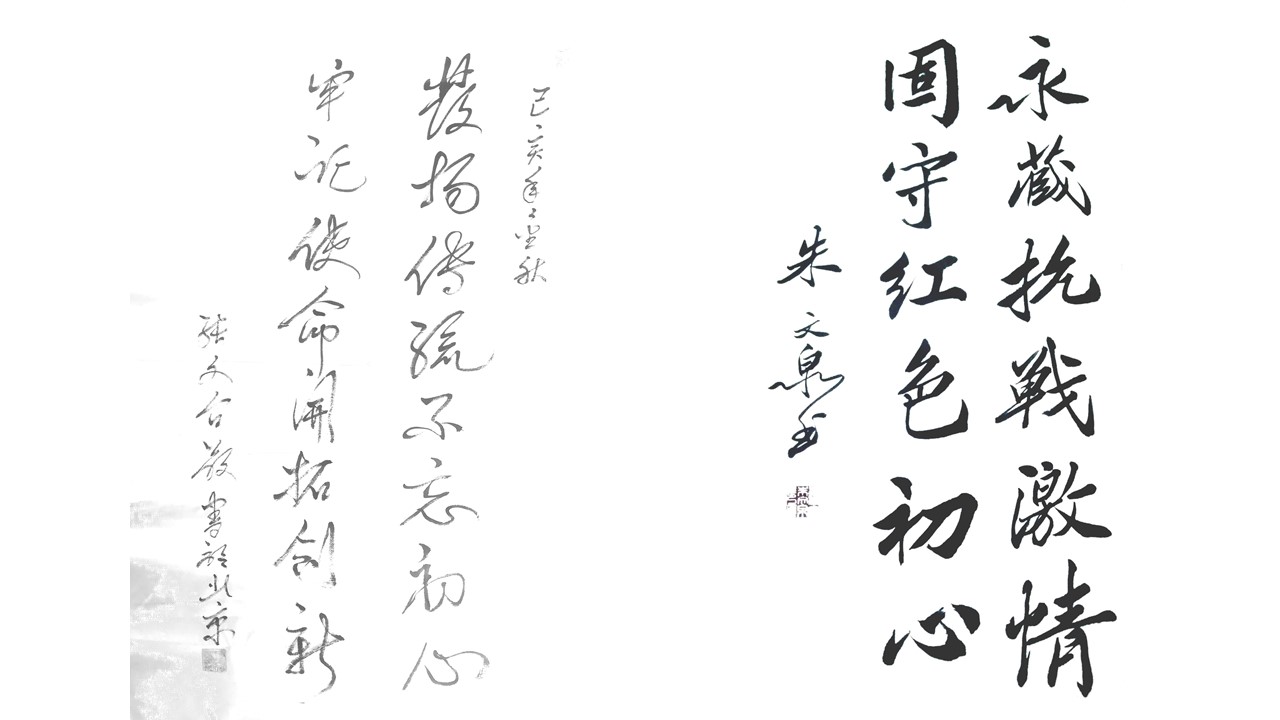 永藏抗战激情
固守红色初心
朱文泉书
己亥年秋
發扬传统不忘初心
牢记使命開拓创新
张文台敬書於北京